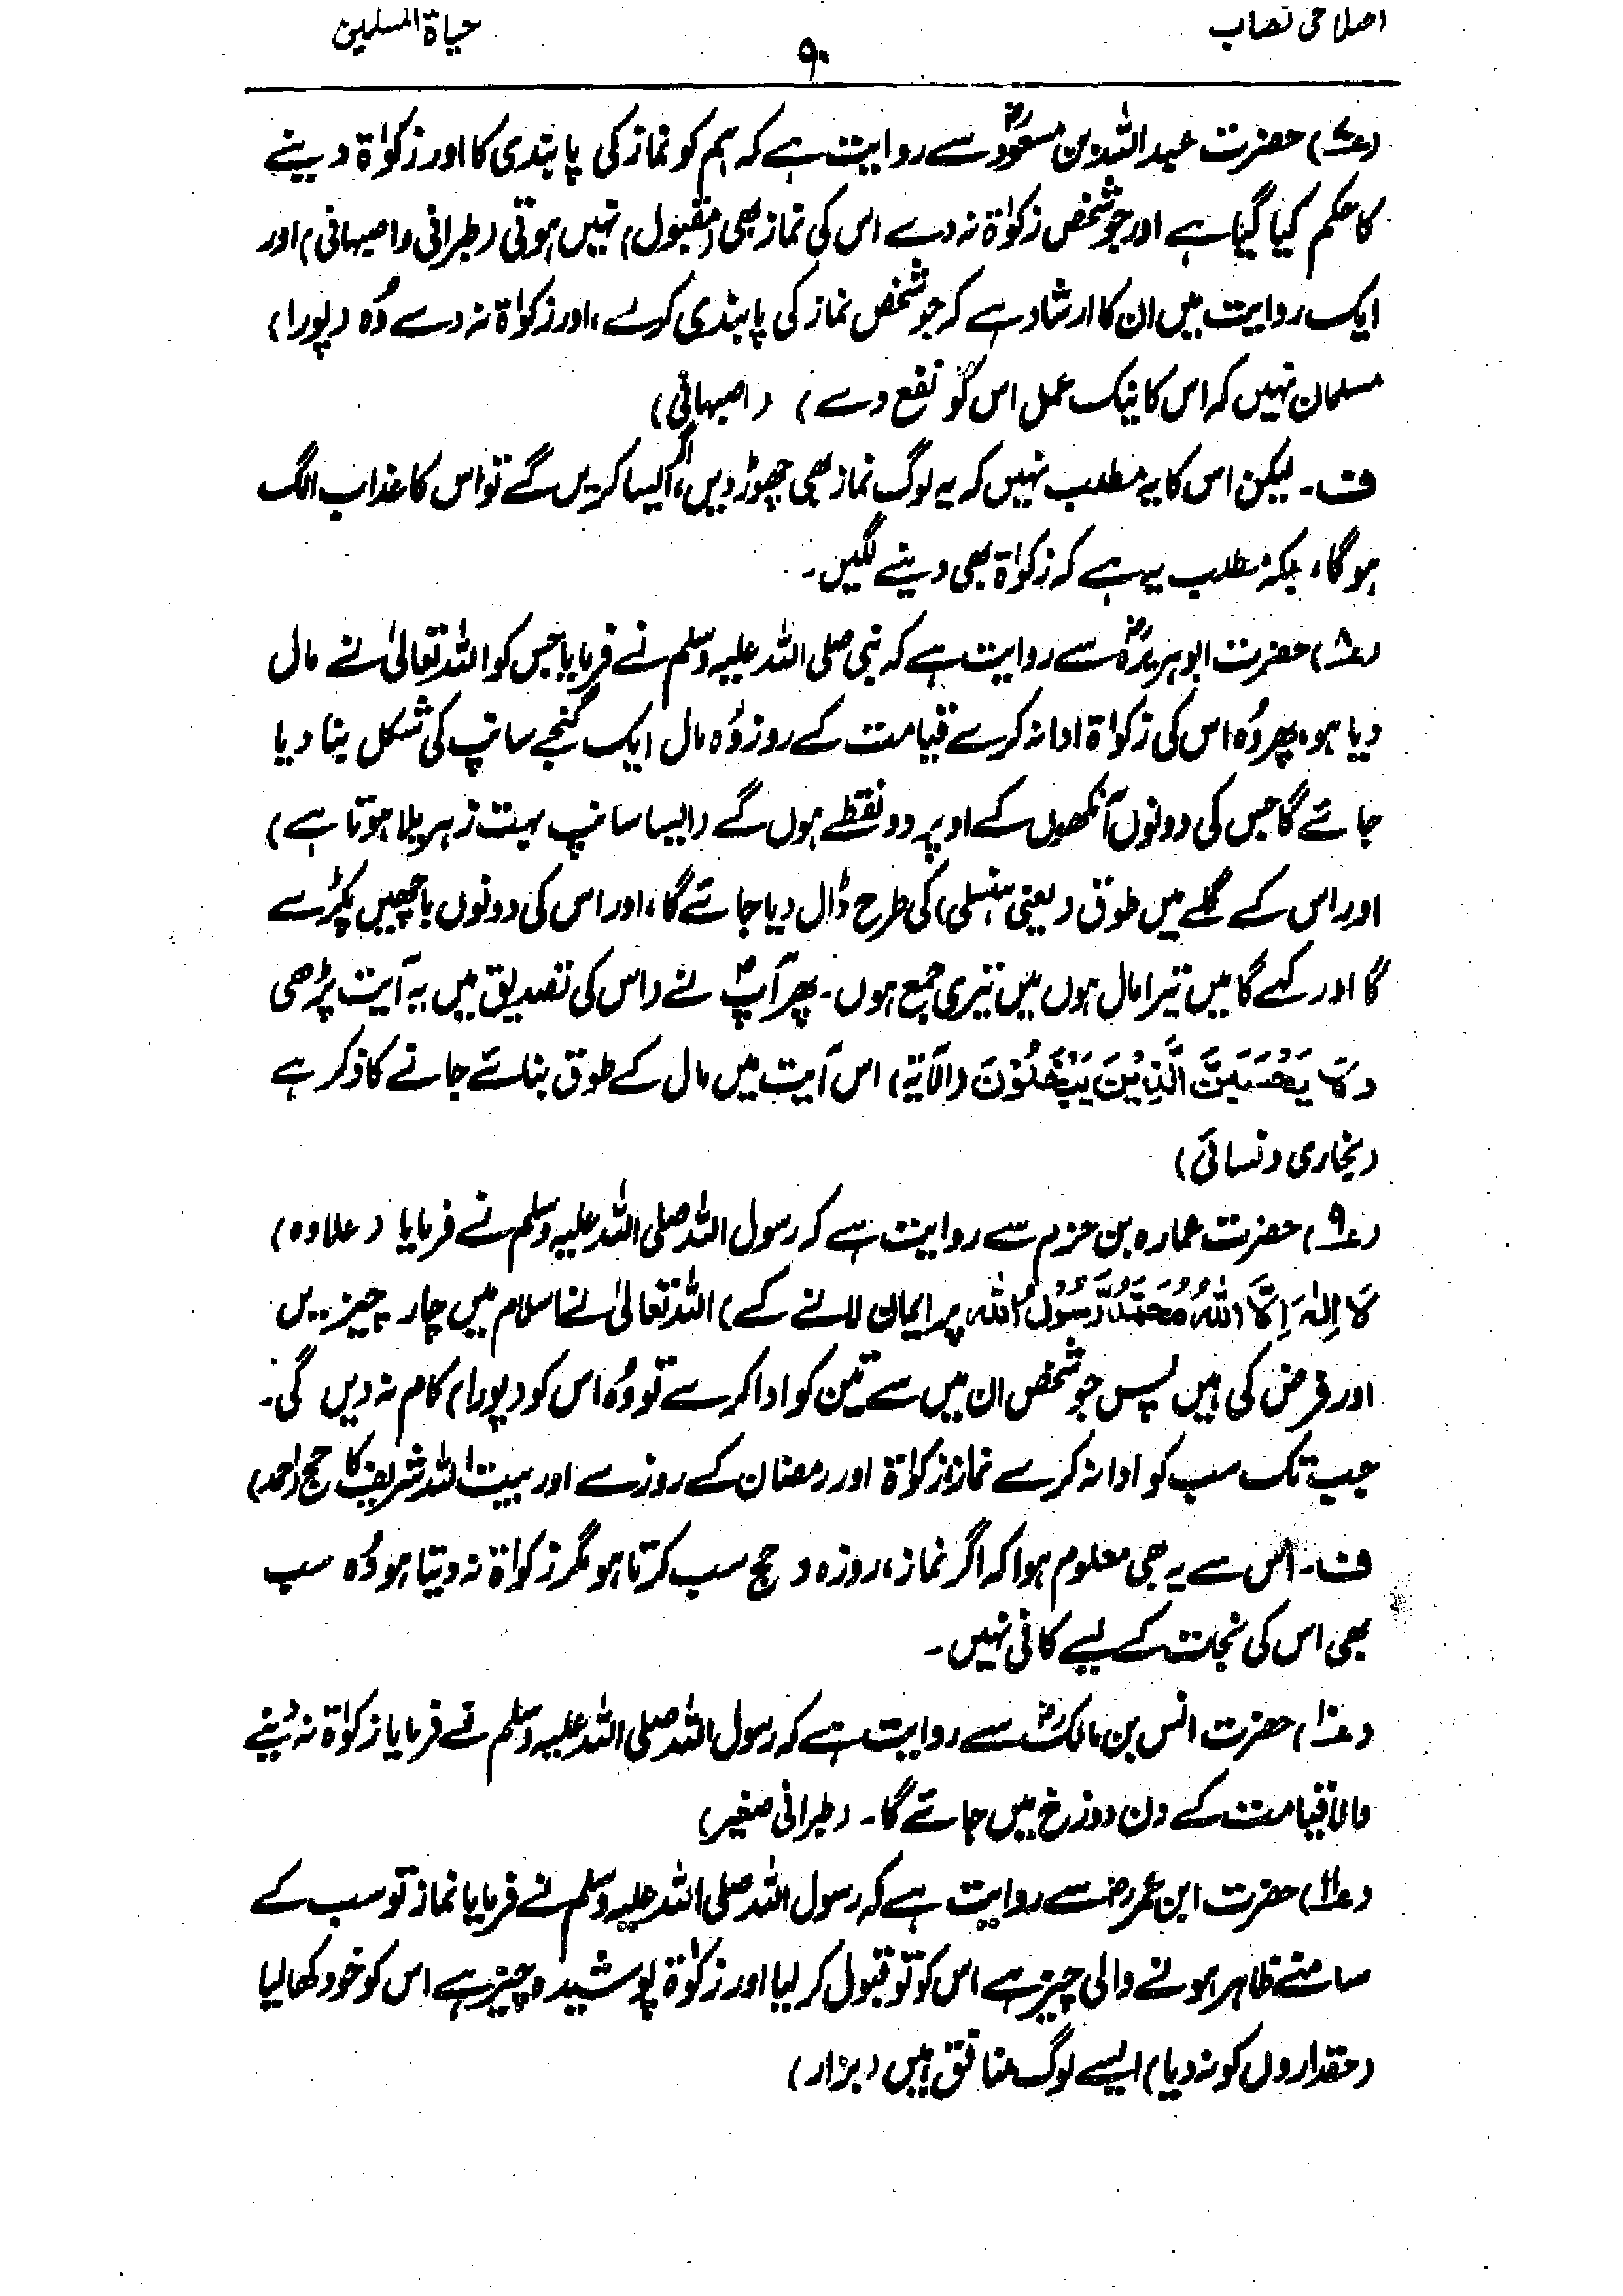 اصلاحی نصاب
۹۰
حیاۃ المسلمین
(۷) حضرت عبداللہ بن مسعودؓ سے روایت ہے کہ ہم کو نماز کی پابندی کا اور زکوٰۃ دینے
کا حکم کیا گیا ہے اور جو شخص زکوٰۃ نہ دے اس کی نماز بھی (مقبول) نہیں ہوتی (طبرانی و اصبہانی) اور
ایک روایت میں ان کا ارشاد ہے کہ جو شخص نماز کی پابندی کرے، اور زکوٰۃ نہ دے وُہ (پورا)
مسلمان نہیں کہ اس کا نیک عمل اس کو نفع دے) (اصبہانی)
ف۔ لیکن اس کا یہ مطلب نہیں کہ یہ لوگ نماز بھی چھوڑ دیں، اگر ایسا کریں گے تو اس کا عذاب الگ
ہو گا، بلکہ مطلب یہ ہے کہ زکوٰۃ بھی دینے لگیں۔
(۸) حضرت ابو ہریرہؓ سے روایت ہے کہ نبی صلی اللہ علیہ وسلم نے فرمایا جس کو اللہ تعالیٰ نے مال
دیا ہو، پھر وُہ اس کی زکوٰۃ ادا نہ کرے قیامت کے روز وُہ مال ایک گنجے سانپ کی شکل بنا دیا
جائے گا جس کی دونوں آنکھوں کے اوپر دو نقطے ہوں گے (ایسا سانپ بہت زہریلا ہوتا ہے)
اور اس کے گلے میں طوق (یعنی ہنسلی) کی طرح ڈال دیا جائے گا، اور اس کی دونوں باچھیں پکڑے
گا اور کہے گا میں تیرا مال ہوں میں تیری جمع ہوں۔ پھر آپؐ نے (اس کی تصدیق میں یہ آیت پڑھی
وَلَا يَحْسَبَنَّ الَّذِيْنَ يَبْخَلُوْنَ (الآیۃ) اس آیت میں مال کے طوق بنائے جانے کا ذکر ہے
(بخاری و نسائی)
(۹) حضرت عمارہ بن حزم سے روایت ہے کہ رسول اللہ صلی اللہ علیہ وسلم نے فرمایا (علاوہ)
لَا اِلٰہَ اِلَّا اللّٰہُ مُحَمَّدٌ رَّسُوْلُ اللّٰہ پر ایمان لانے کے) اللہ تعالیٰ نے اسلام میں چار چیزیں
اور فرض کی ہیں پس جو شخص ان میں سے تین کو ادا کرے تو وُہ اس کو (پورا) کام نہ دیں گی۔
جب تک سب کو ادا نہ کرے نماز و زکوٰۃ اور رمضان کے روزے اور بیت اللہ شریف کا حج (احمد)
ف۔ اس سے یہ بھی معلوم ہوا کہ اگر نماز، روزہ و حج سب کرتا ہو مگر زکوٰۃ نہ دیتا ہو وُہ سب
بھی اس کی نجات کے لیے کافی نہیں۔
(۱۰) حضرت انس بن مالکؓ سے روایت ہے کہ رسول اللہ صلی اللہ علیہ وسلم نے فرمایا زکوٰۃ نہ دینے
والا قیامت کے دن دوزخ میں جائے گا۔ (طبرانی صغیر)
(۱۱) حضرت ابن عمر رضؓ سے روایت ہے کہ رسول اللہ صلی اللہ علیہ وسلم نے فرمایا نماز تو سب کے
سامنے ظاہر ہونے والی چیز ہے اس کو تو قبول کر لیا اور زکوٰۃ پوشیدہ چیز ہے اس کو خود کھا لیا
(حقداروں کو نہ دیا) ایسے لوگ منافق ہیں (بزار)